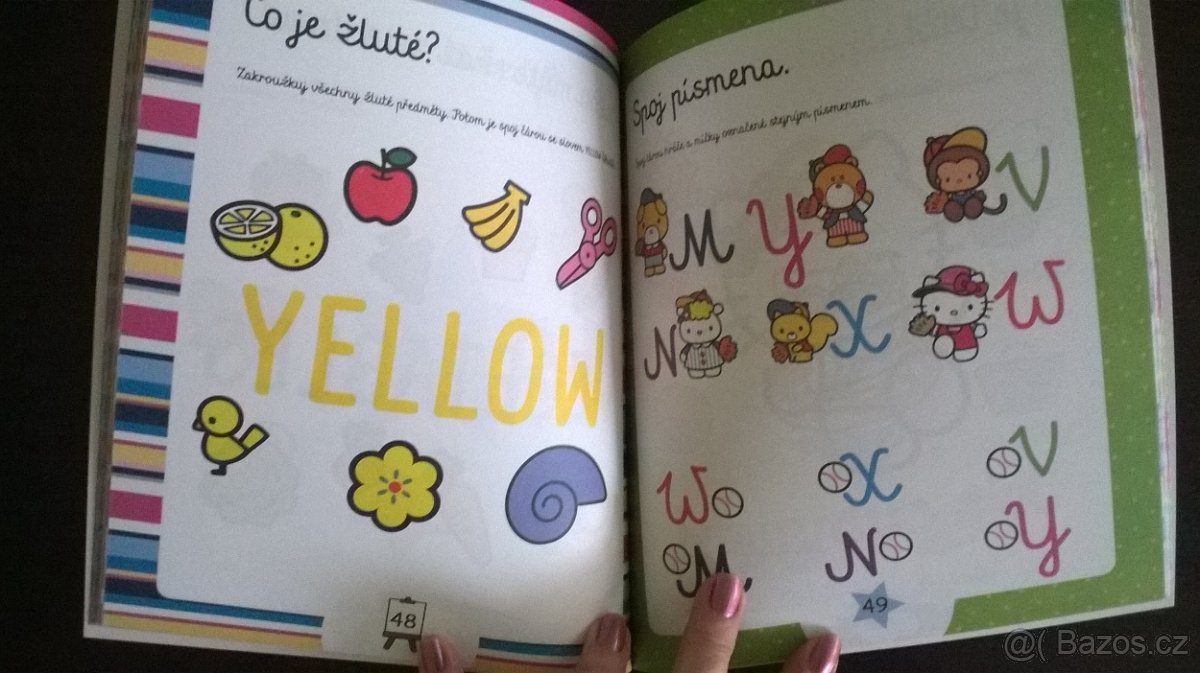 Co je žluté?
Zakroužkuj všechny žluté předměty. Potom je spoj čárou se slovem
YELLOW
48
Spoj písmena.
čárou hráče a míčky označené stejným písmenem.
M Y V
N X W
W X V
M N Y
49
@( Bazos.cz